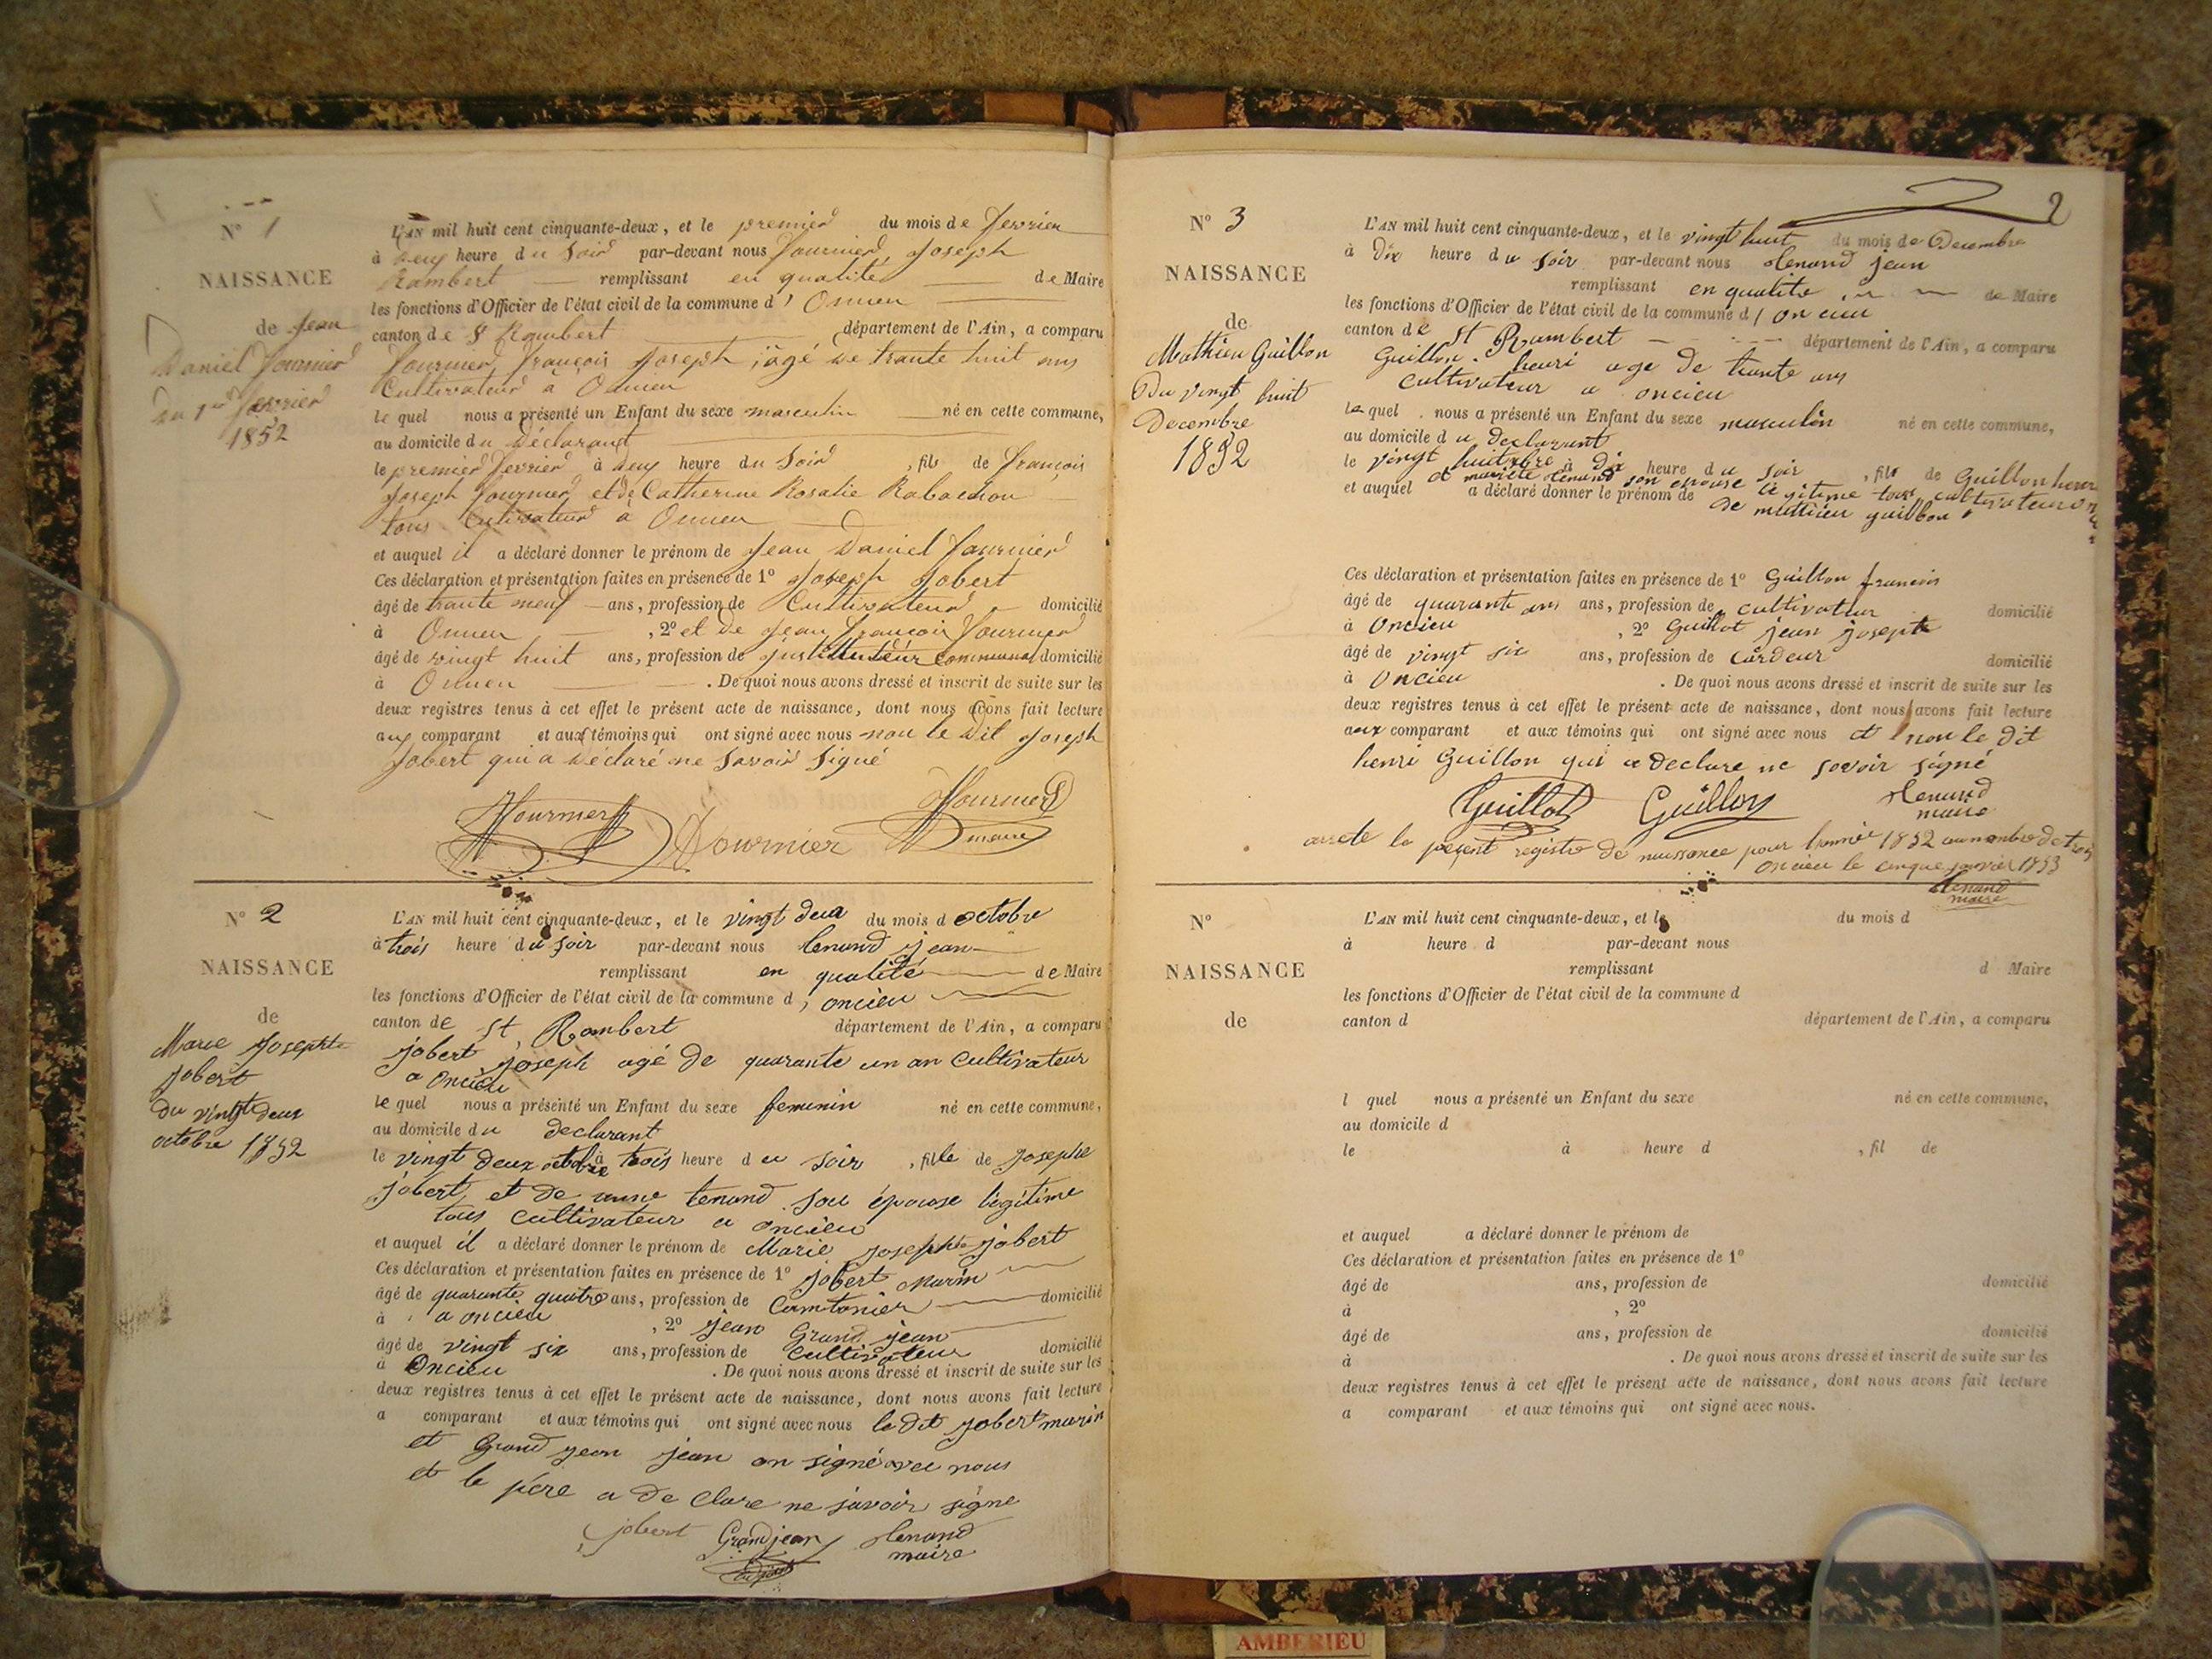 N° 1
NAISSANCE
de Jean
Daniel Fournier
du 1er fevrier
1852
L'AN mil huit cent cinquante-deux, et le premier du mois de fevrier
à deux heure du Soir par-devant nous Fournier Joseph
Rambert remplissant en qualité de Maire
les fonctions d'Officier de l'état civil de la commune d' Oncieu
canton de St Rambert département de l'Ain, a comparu
Fournier françois Joseph, âgé de trante huit ans
Cultivateur à Oncieu
le quel nous a présenté un Enfant du sexe masculin né en cette commune,
au domicile du Déclarant
le premier fevrier à deux heure du Soir, fils de françois
Joseph Fournier et de Catherine Rosalie
tous Cultivateur à Oncieu
et auquel il a déclaré donner le prénom de Jean Daniel Fournier
Ces déclaration et présentation faites en présence de 1° Joseph Jobert
âgé de trante neuf ans, profession de Cultivateur domicilié
à Oncieu, 2° et de Jean François Fournier
âgé de vingt huit ans, profession de instituteur communal domicilié
à Oncieu. De quoi nous avons dressé et inscrit de suite sur les
deux registres tenus à cet effet le présent acte de naissance, dont nous avons fait lecture
aux comparant et aux témoins qui ont signé avec nous non le dit Joseph
Jobert qui a déclaré ne Savoir Signé
Fournier Fournier Fournier
maire
N° 2
NAISSANCE
de
Marie Josephte
Jobert
du vingt deux
octobre 1852
L'AN mil huit cent cinquante-deux, et le vingt deux du mois d octobre
à trois heure du soir par-devant nous tenand jean
remplissant en qualité de Maire
les fonctions d'Officier de l'état civil de la commune d, oncieu
canton de St, Rambert département de l'Ain, a comparu
jobert joseph agé de quarante un an cultivateur
a oncieu
le quel nous a présenté un Enfant du sexe feminin né en cette commune,
au domicile du declarant
le vingt deux octobre à trois heure du soir, fille de josephe
jobert et de anne tenand son épouse légitime
tous cultivateur a oncieu
et auquel il a déclaré donner le prénom de Marie josephte jobert
Ces déclaration et présentation faites en présence de 1° jobert marin
âgé de quarante quatre ans, profession de Cantonier domicilié
à a oncieu, 2° jean Grand jean
âgé de vingt six ans, profession de cultivateur domicilié
à Oncieu. De quoi nous avons dressé et inscrit de suite sur les
deux registres tenus à cet effet le présent acte de naissance, dont nous avons fait lecture
a comparant et aux témoins qui ont signé avec nous le dit jobert marin
et Grand jean jean on signé avec nous
et le père a de clare ne savoir signe
jobert Grandjean tenand
maire
2
N° 3
NAISSANCE
de
Mathieu Guillon
Du vingt huit
Decembre
1852
L'AN mil huit cent cinquante-deux, et le vingt huit du mois de Decembre
à Dix heure du soir par-devant nous tenand jean
remplissant en qualité de Maire
les fonctions d'Officier de l'état civil de la commune d, oncieu
canton de St Rambert département de l'Ain, a comparu
Guillon henri age de trante ans
cultivateur a oncieu
le quel nous a présenté un Enfant du sexe masculin né en cette commune,
au domicile du declarant
le vingt huit xbre à dix heure du soir, fils de Guillon henri
et mariete tenand son epouse légitime tous cultivateur
et auquel a déclaré donner le prénom de de mathieu guillon
Ces déclaration et présentation faites en présence de 1° Guillon francois
âgé de quarante ans ans, profession de cultivateur domicilié
à Oncieu, 2° Guillot jean joseph
âgé de vingt six ans, profession de Cardeur domicilié
à Oncieu. De quoi nous avons dressé et inscrit de suite sur les
deux registres tenus à cet effet le présent acte de naissance, dont nous avons fait lecture
aux comparant et aux témoins qui ont signé avec nous et non le dit
henri Guillon qui a declare ne sovoir signé
Guillot Guillon tenand
maire
arrete le present registre de naissance pour l'année 1852 au nombre de trois
oncieu le cinque janvier 1853
tenand
maire
N°
NAISSANCE
de
L'AN mil huit cent cinquante-deux, et le du mois d
à heure d par-devant nous
remplissant d Maire
les fonctions d'Officier de l'état civil de la commune d
canton d département de l'Ain, a comparu
l quel nous a présenté un Enfant du sexe né en cette commune,
au domicile d
le à heure d , fil de
et auquel a déclaré donner le prénom de
Ces déclaration et présentation faites en présence de 1°
âgé de ans, profession de domicilié
à , 2°
âgé de ans, profession de domicilié
à . De quoi nous avons dressé et inscrit de suite sur les
deux registres tenus à cet effet le présent acte de naissance, dont nous avons fait lecture
a comparant et aux témoins qui ont signé avec nous.
AMBERIEU